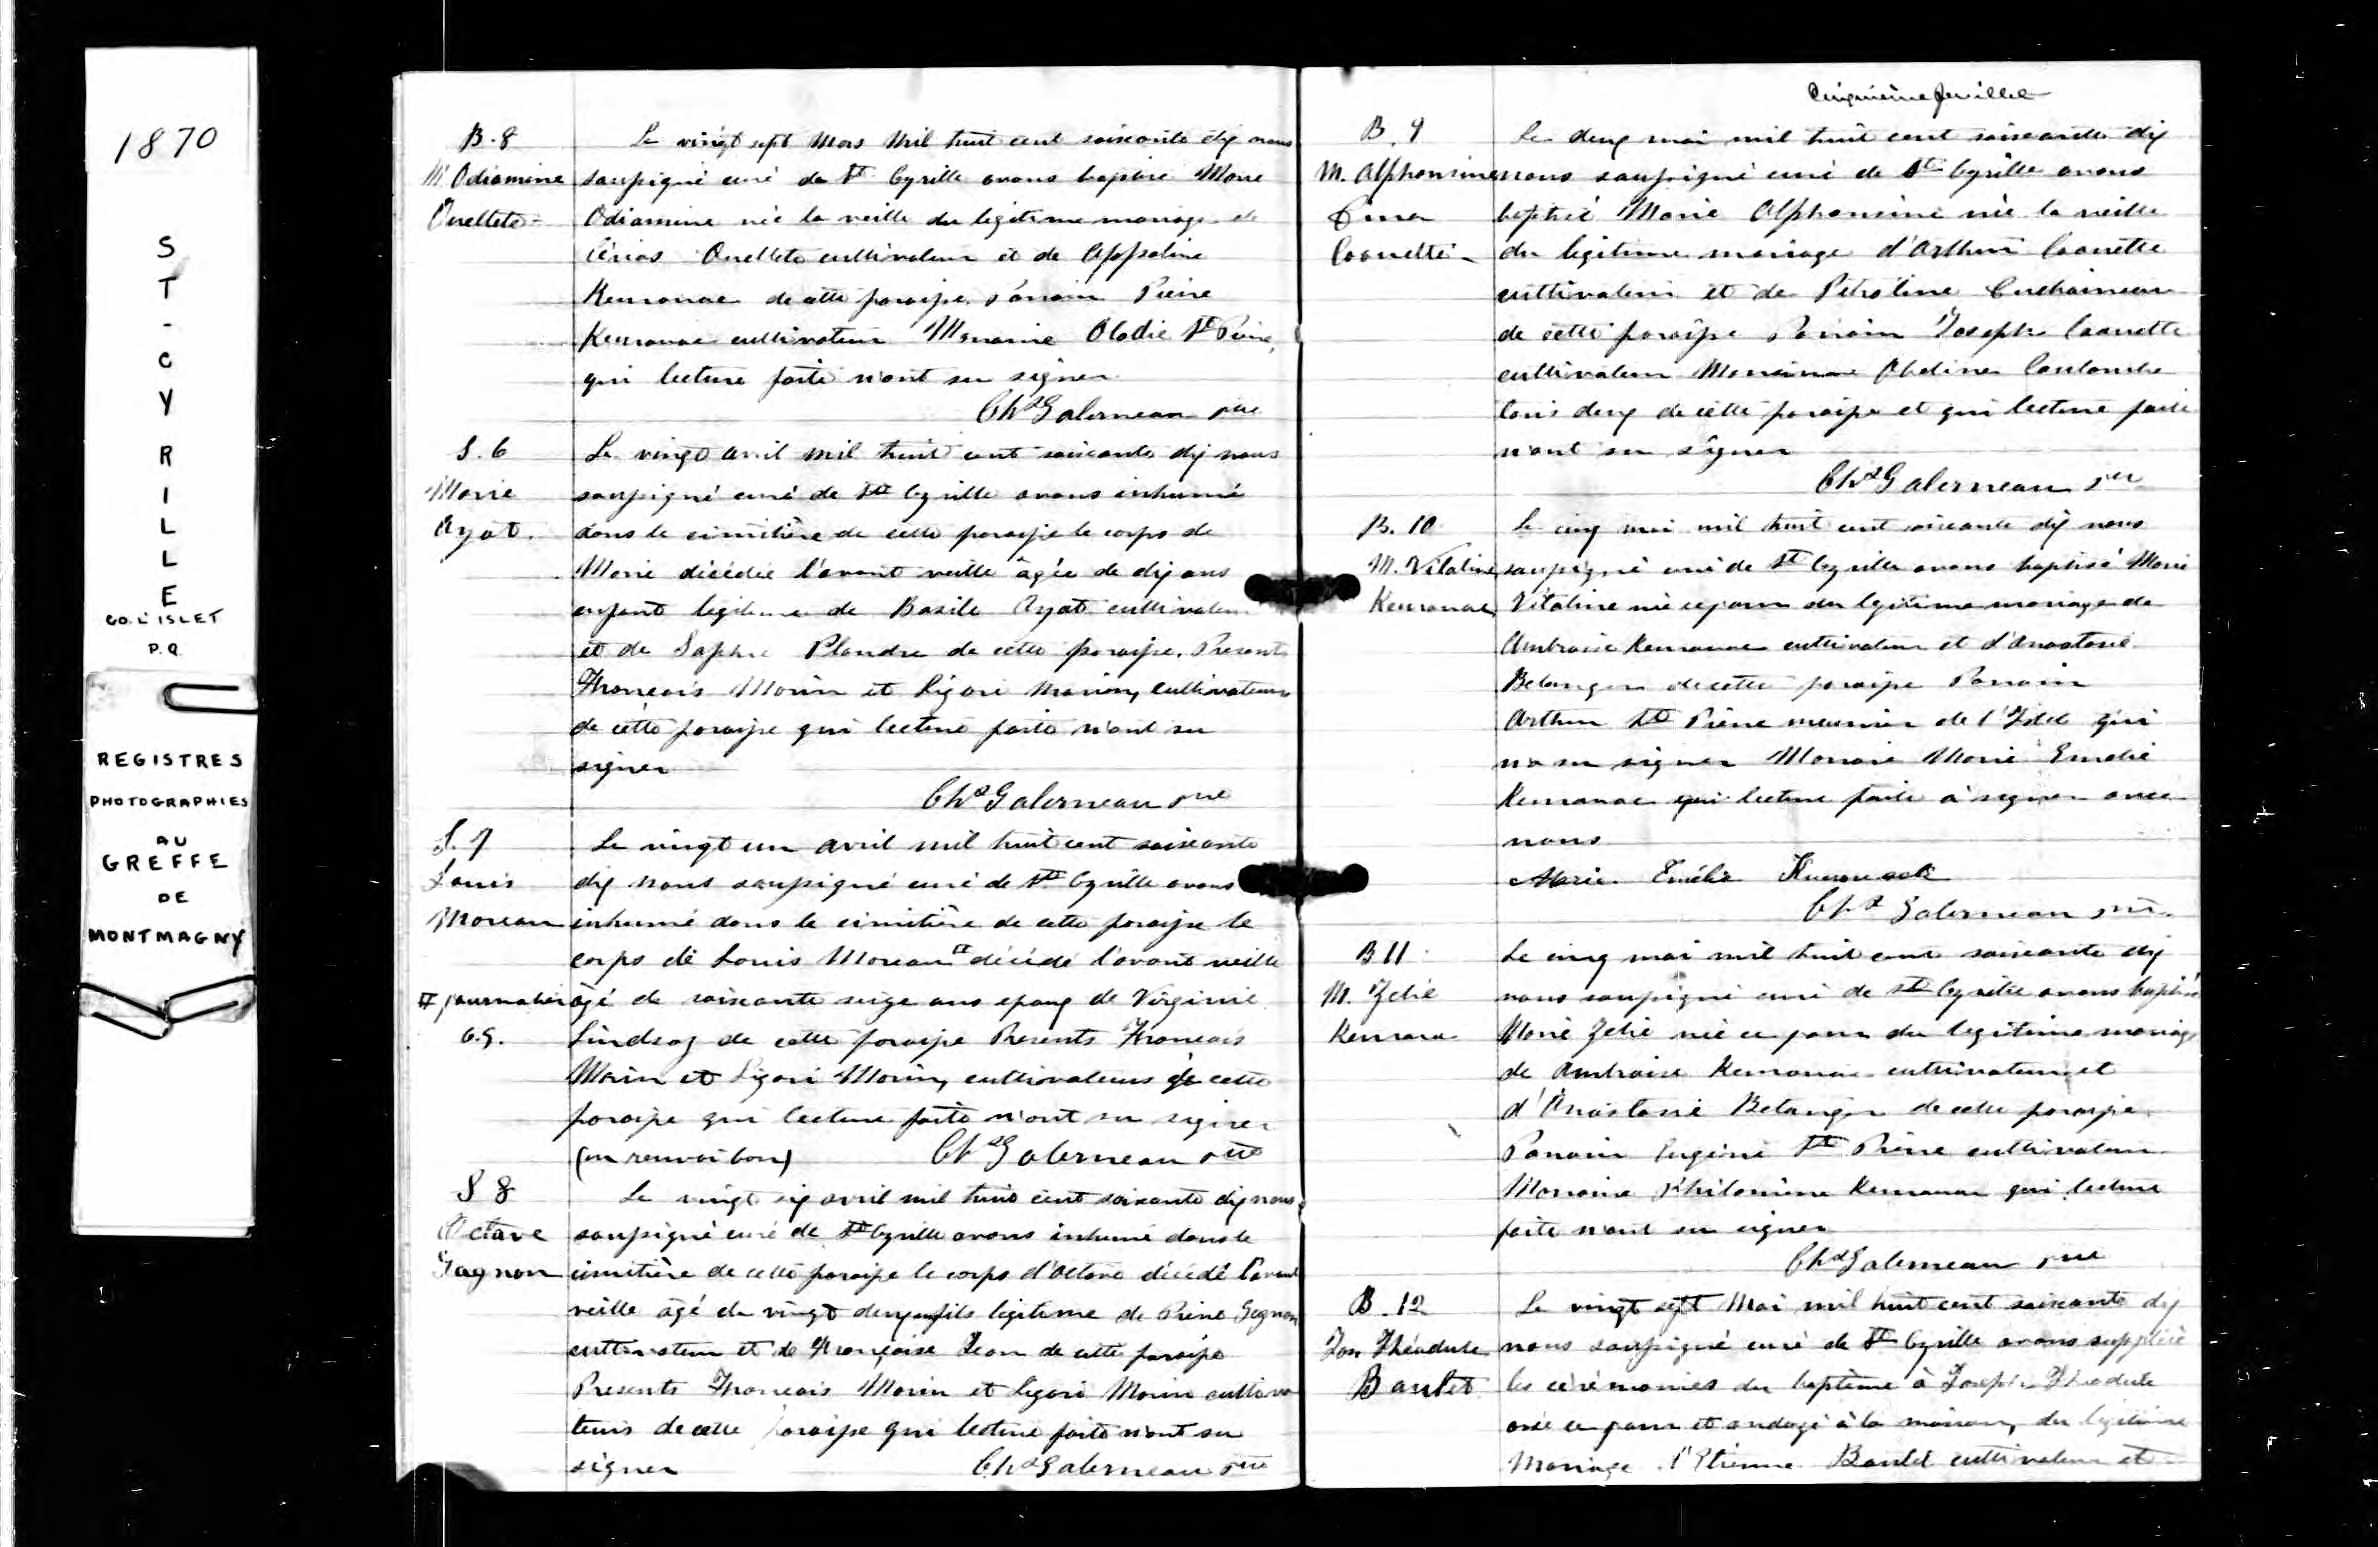 1870
ST-CYRILLE
CO. L'ISLET
P.Q.
REGISTRES
PHOTOGRAPHIES
AU
GREFFE
DE
MONTMAGNY
B. 8
M Odiamine
Ouellete
Le vingt sept Mars Mil huit cent soixante dix nous
soussigné curé de St Cyrille avons baptisé Marie
Odiamine née la veille du légitime mariage de
Ouellete cultivateur et de Appoline
Kerouac de cette paroisse. Parrain Pierre
Kerouac cultivateur Marraine Elodie St Pierre,
qui lecture faite n'ont su signer.
Chs Galerneau ptre
S. 6
Marie
Ayot.
Le vingt avril mil huit cent soixante dix nous
soussigné curé de St Cyrille avons inhumé
dans le cimitière de cette paroisse le corps de
Marie décédée l'avant veille âgée de dix ans
enfant légitime de Basile Ayot cultivateur
et de Sophie Plandre de cette paroisse. Presents
François Morin et Ligori Morin, cultivateurs
de cette paroisse qui lecture faite n'ont su
signer
Chs Galerneau ptre
S. 7
Louis
Moreau
# journalier
C.G.
Le vingt un avril mil huit cent soixante
dix nous soussigné curé de St Cyrille avons
inhumé dans le cimitière de cette paroisse le
corps de Louis Moreau # décédé l'avant veille
âgé de soixante seize ans epoux de Virginie
Lindsay de cette paroisse Presents François
Morin et Ligori Morin, cultivateurs de cette
paroisse qui lecture faite n'ont su signer
(un renvoi bon) Chs Galerneau ptre
S 8
Octave
Gagnon
Le vingt six avril mil huit cent soixante dix nous
soussigné curé de St Cyrille avons inhumé dans le
cimitière de cette paroisse le corps d'Octave décédé l'avant
veille âgé de vingt deux fils légitime de Pierre Gagnon
cultivateur et de Françoise Jean de cette paroisse
Presents François Morin et Ligori Morin cultiva
teurs de cette paroisse qui lecture faite n'ont su
signer Chs Galerneau ptre
Cinquième feuillet
B. 9
M. Alphonsine
Caouette
Le deux mai mil huit cent soixante dix
nous soussigné curé de St Cyrille avons
baptisé Marie Alphonsine née la veille
du légitime mariage d'Arthur Caouette
cultivateur et de Petroline
de cette paroisse Parrain Joseph Caouette
cultivateur Marraine Obeline Coulombe
tous deux de cette paroisse et qui lecture faite
n'ont su signer
Chs Galerneau ptre
B. 10
M. Vitaline
Kerouac
Le cinq mai mil huit cent soixante dix nous
soussigné curé de St Cyrille avons baptisé Marie
Vitaline née ce jour du légitime mariage de
Ambroise Kerouac cultivateur et d'Anastasie
Belanger de cette paroisse Parrain
Arthur St Pierre meunier de l'Islet qui
n'a su signer Marraine Marie Emelie
Kerouac qui lecture faite a signer avec
nous
Marie Emélie
Chs Galerneau ptre.
B 11
M. Zelie
Kerouac
Le cinq mai mil huit cent soixante dix
nous soussigné curé de St Cyrille avons baptisé
Marie Zelie née ce jour du légitime mariage
de Ambroise Kerouac cultivateur et
d'Anastasie Belanger de cette paroisse
Parrain Eugène St Pierre cultivateur
Marraine Philomène Kerouac qui lecture
faite n'ont su signer
Chs Galerneau ptre
B. 12
Jos Théodule
Boulet
Le vingt sept Mai mil huit cent soixante dix
nous soussigné curé de St Cyrille avons suppléé
les cérémonies du baptême à Joseph Théodule
née ce jour et ondoyé à la maison, du légitime
Mariage d'Etienne Boulet cultivateur et